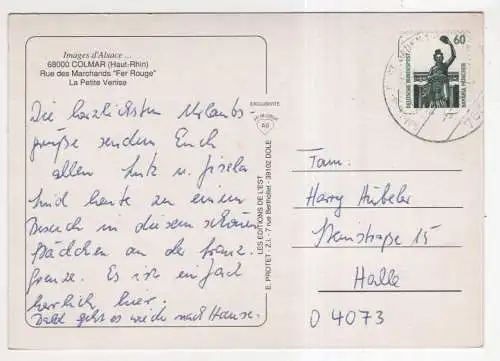 Images d'Alsace ...
68000 COLMAR (Haut-Rhin)
Rue des Marchands "Fer Rouge"
La Petite Venise
Die herzlichsten Urlaubs-
grüße senden Euch
allen Lutz u. Gisela
Sind heute zu einem
Besuch in diesem schönen
Städtchen an der franz.
Grenze. Es ist einfach
herrlich hier.
Bald geht es wieder nach Hause.
EXCLUSIVITÉ
LES EDITIONS DE L'EST
E. PROTET - Z.I. - 7 rue Berthollet - 39102 DOLE
60
DEUTSCHE BUNDESPOST
BAVARIA MÜNCHEN
Fam.
Harry Hübeler
Steinstraße 15
Halle
O 4073